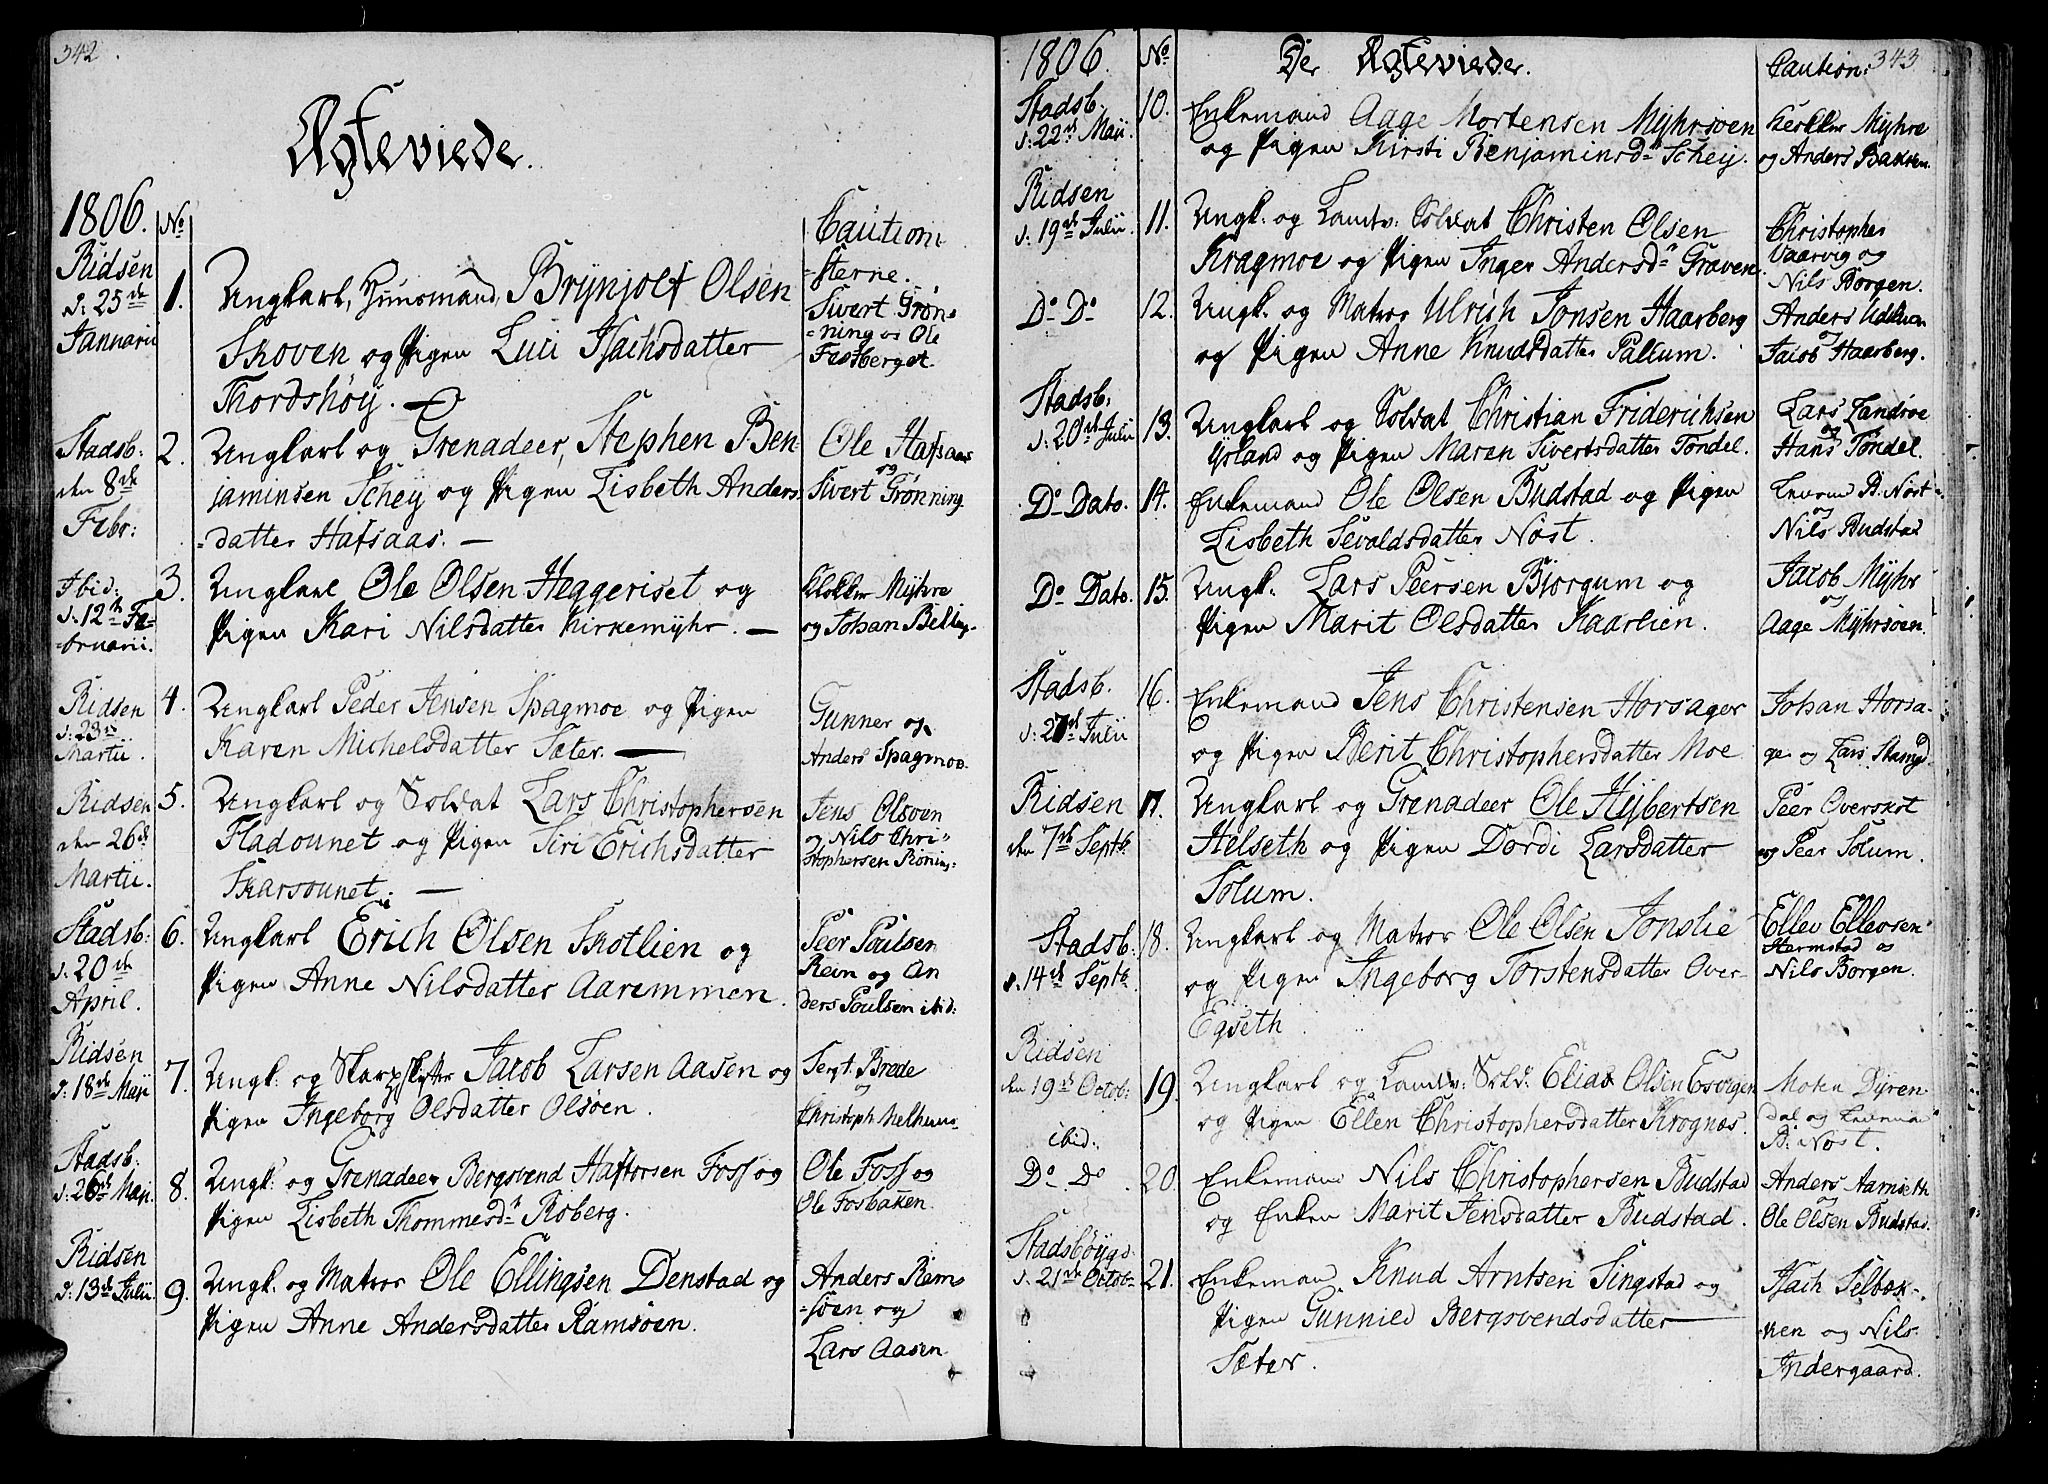 342.
Ægteviede.
1806. No
Cautioni
=sterne.
Ridsen
d: 25de
Januarii
1. Ungkarl, Huusmand, Brynjolf Olsen
Skoven og Pigen Luci Isachsdatter
Thordshøy. —
Sivert Grøn=
=ning og Ole
Fosberget.
Stadsb:
den 8de
Febr:
2. Ungkarl og Grenadeer, Stephen Ben-
jaminsen Schey og Pigen Lisbeth Anders
=datter Hafsaas. —
Ole Hafsaas
og
Sivert Grønning.
Ibid:
d: 12te Fe=
=bruarii.
3. Ungkarl Ole Olsen Heggeriset og
Pigen Kari Nilsdatter Kirkemyhr. —
Klokker Myhre
og Johan Belling.
Ridsen
d: 23de
Martii.
4. Ungkarl Peder Jensen Spagmoe og Pigen
Karen Michelsdatter Sæter. —
Gunner og
Anders Spagmoe.
Ridsen
den 26de
Martii.
5. Ungkarl og Soldat Lars Christophersen
Fladounet og Pigen Siri Erichsdatter
Skarsounet. —
Jens Olsøen
og Nils Chri=
stophersen Røning.
Stadsb:
d: 20de
April.
6. Ungkarl Erich Olsen Skotlien og
Pigen Anne Nilsdatter Aaremmen.
Peer Poulsen
Rein og An
ders Poulsen ibid:
Ridsen
d: 18de Maji
7. Ungk: og Skarpskytter Jacob Larsen Aasen og
Pigen Ingeborg Olsdatter Olsøen.
Sergt: Brede
og
Christoph:
Stadsb.
d: 26de Maji.
8. Ungk: og Grenadeer Bergsvend Haftorsen Foss og
Pigen Lisbeth Thommesdr Roberg.
Ole Foss og
Ole Fosbakken.
Ridsen
d: 13de Julii.
9. Ungk: og Matros Ole Ellingsen Denstad og
Pigen Anne Andersdatter Ramsøen.
Anders Rem=
=søen og
Lars Aasen
1806. No De Ægteviede. Caution: 343
Stadsb.
d: 22de Maii.
10. Enkemand Aage Mortensen Myhrsøen
og Pigen Kirsti Benjaminsdr Schey.
Klokker Myhre
og Anders Bakken.
Ridsen
d: 19de Julii.
11. Ungk: og Landv: Soldat Christen Olsen
Kragmoe og Pigen Inger Andersdr Graven.
Christopher
Vaarvig og
Nils Borgen.
Do Do
12. Ungk: og Matros Ulrich Jonsen Haarberg
og Pigen Anne Knudsdatter Pallum.
Anders
og
Jacob Haarberg.
Stadsb:
d: 20de Julii
13. Ungkarl og Soldat Christian Friderichsen
Ysland og Pigen Maren Sivertsdatter Tøndel.
Lars Landrøe
og
Hans Tøndel.
Do Dato.
14. Enkemand Ole Olsen Budstad og Pigen
Lisbeth Sevaldsdatter Nøst.
B: Nøst
og
Nils Budstad
Do Dato.
15. Ungk. Lars Peersen Bjørgum og
Pigen Marit Olsdatter Kaarlien.
Jacob Myhr
og
Aage Myhrsøen.
Stadsb.
d: 27de Julii
16. Enkemand Jens Christensen Horsager
og Pigen Berit Christophersdatter Moe
Johan Horsa-
ger og Lars
Ridsen
den 7de Septb.
17. Ungkarl og Grenadeer Ole Hybertsen
Helseth og Pigen Dordi Larsdatter
Solum.
Peer Overskot
og Peer Solum.
Stadsb.
d. 14de Septb
18. Ungkarl og Matros Ole Olsen Jonslie
og Pigen Ingeborg Torstensdatter Over-
Egseth.
Ellev Ellevsen
Stermstad og
Nils Borgen.
Ridsen
den 19de Octob:
19. Ungkarl og Landv: Sold: Elias Olsen Esvigen
og Pigen Ellen Christophersdatter Krognæs.
Dyren
dal og
B: Nøst.
ibid:
Do Do
20. Enkemand Nils Christophersen Budstad
og Enken Marit Jensdatter Budstad.
Anders Aamseth
og
Ole Olsen Budstad.
Stadsbøygd.
d. 21de Octob.
21. Enkemand Knud Arntsen Singstad og
Pigen Gunnild Bergsvendsdatter
Sæter.
Isach Selbæk-
ken og Nils
Indergaard.